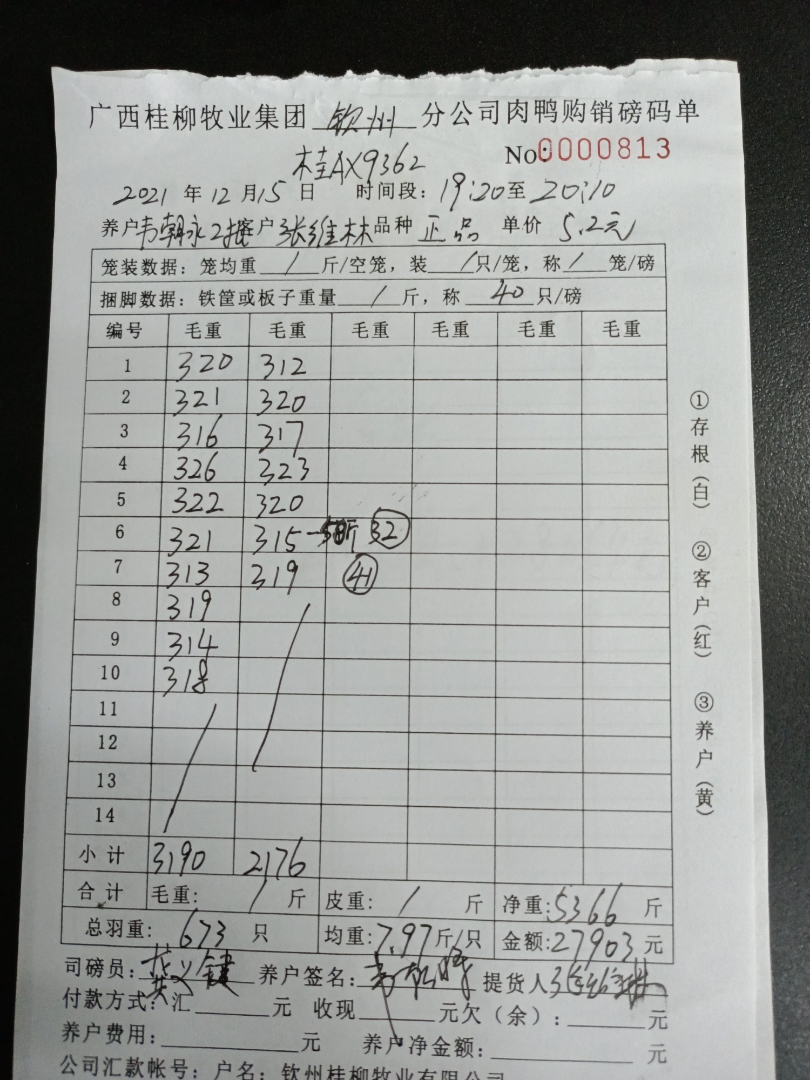 广西桂柳牧业集团 钦州 分公司肉鸭购销磅码单
桂AX9362 No:0000813
2021 年 12 月 15 日 时间段: 19:20 至 20:10
养户 韦朝永2批 客户 张维林 品种 正品 单价 5.2元
笼装数据: 笼均重 / 斤/空笼, 装 / 只/笼, 称 / 笼/磅
捆脚数据: 铁筐或板子重量 / 斤, 称 40 只/磅
编号 毛重 毛重 毛重 毛重 毛重 毛重
1 320 312
2 321 320
3 316 317
4 326 323
5 322 320
6 321 315 32
7 313 319 41
8 319
9 314
10 318
11
12
13
14
小计 3190 2176
合计 毛重: / 斤 皮重: / 斤 净重: 5366 斤
总羽重: 673 只 均重: 7.97 斤/只 金额: 27903 元
司磅员: 养户签名: 提货人
付款方式: 汇 元 收现 元欠(余): 元
养户费用: 元 养户净金额: 元
公司汇款帐号: 户名: 钦州桂柳牧业有限公司
①存根(白) ②客户(红) ③养户(黄)